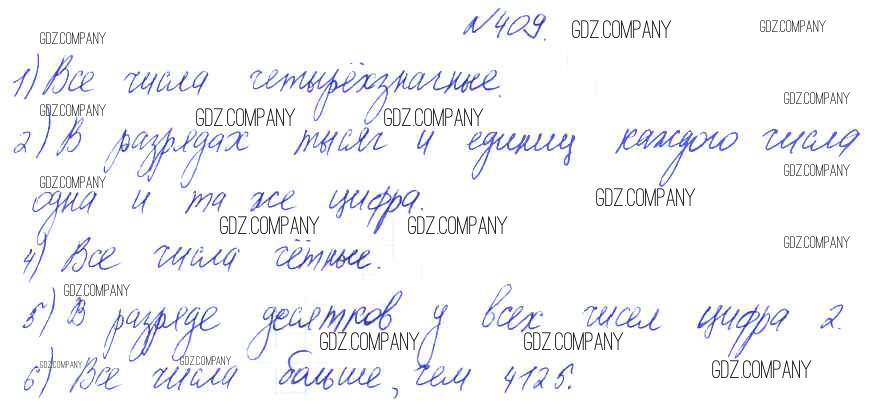 №409. GDZ.COMPANY GDZ.COMPANY
GDZ.COMPANY
1) Все числа четырёхзначные.
GDZ.COMPANY
GDZ.COMPANY GDZ.COMPANY GDZ.COMPANY
2) В разрядах тысяч и единиц каждого числа
GDZ.COMPANY
GDZ.COMPANY GDZ.COMPANY
одна и та же цифра.
GDZ.COMPANY GDZ.COMPANY
GDZ.COMPANY
4) Все числа чётные.
GDZ.COMPANY
5) В разряде десятков у всех чисел цифра 2.
GDZ.COMPANY GDZ.COMPANY
GDZ.COMPANY GDZ.COMPANY GDZ.COMPANY
6) Все числа больше, чем 4125.